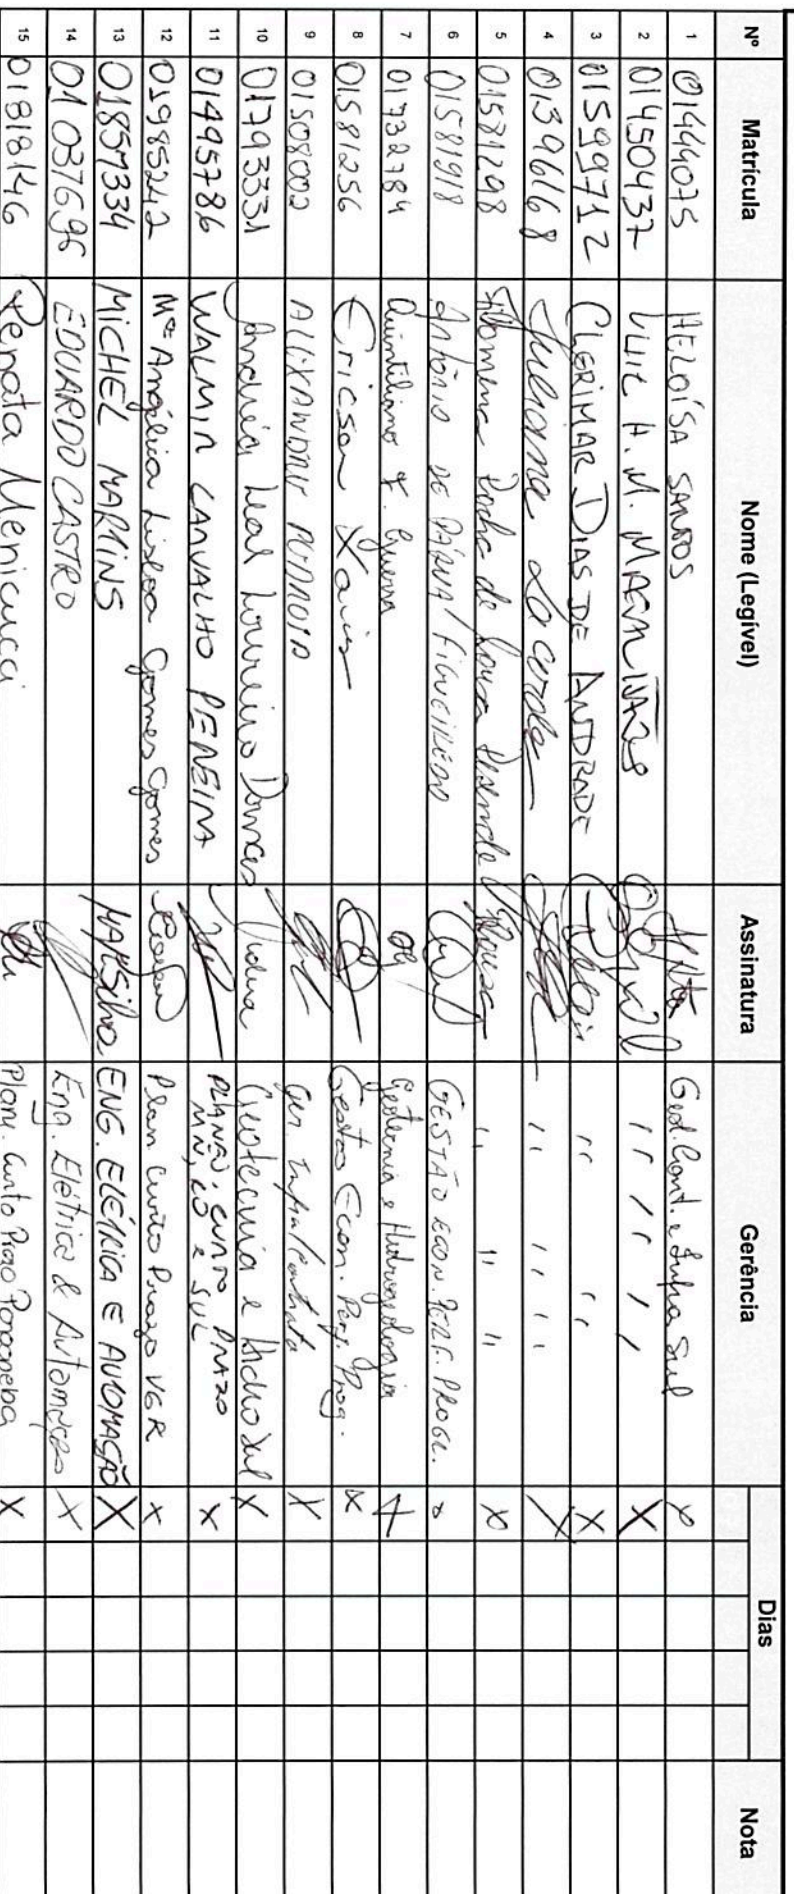 Nº Matrícula Nome (Legível) Assinatura Gerência Dias Nota
1 01444075 HELOÍSA SANTOS Ged. Cont. e Infra Sul X
2 01450437 LUIZ H. M. '' '' '' X
3 01599712 CLERIMAR DIAS DE ANDRADE '' '' X
4 01396168 Juliana Lacerda '' '' X
5 01581298 Filomena Rocha de Souza Resende '' '' '' X
6 01581918 Antônio DE PÁDUA FIGUEIREDO GESTÃO ECON. PERF. PROGR. X
7 01732784 Quintiliano F. Guerra Geotecnia e Hidrogeologia X
8 01581256 Ericson Xavier Gestão Econ. Perf. Prog. X
9 01508002 ALEXANDRE PEDROSA Ger. Infra/Contrato X
10 01793331 Andréia Leal Loureiro Geotecnia e Hidro Sul X
11 01495786 WALMIR CARVALHO PEREIRA PLANEJ. CURTO PRAZO
MN, CO e SUL X
12 01985242 Mª Angélica Lisboa Gomes Gomes Plan Curto Prazo VGR X
13 01857334 MICHEL MARTINS MAMSilva ENG. ELÉTRICA E AUTOMAÇÃO X
14 01037696 EDUARDO CASTRO Eng. Elétrica & Automação X
15 01818146 Renata Menicucci Planj. Curto Prazo Paraopeba X